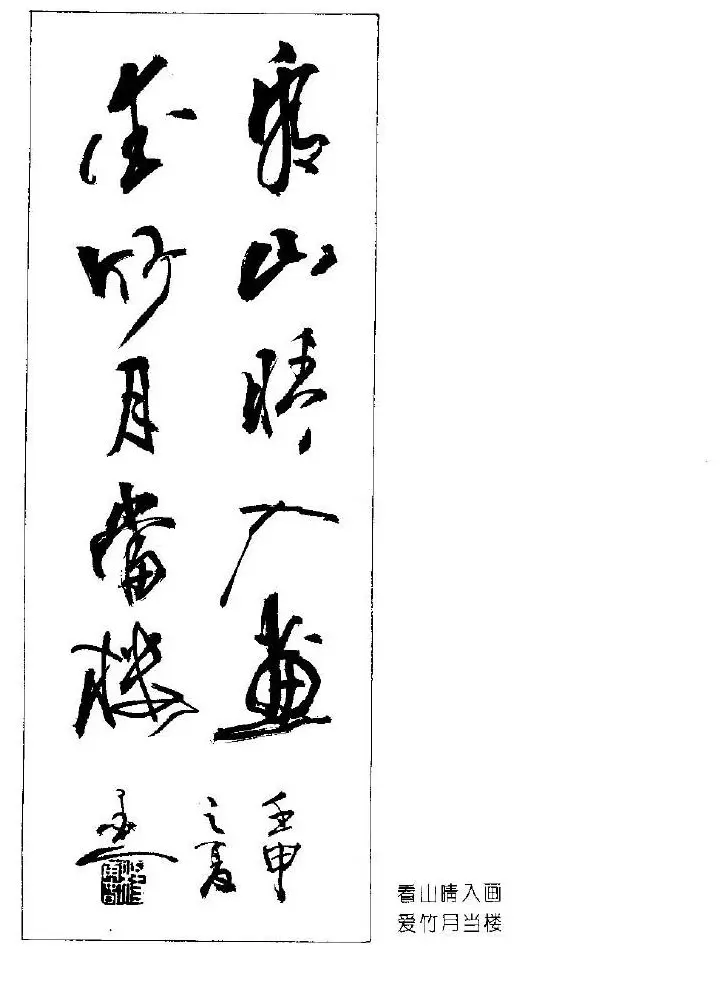 看山晴入畫
愛竹月當樓
壬申
之夏
看山晴入画
爱竹月当楼